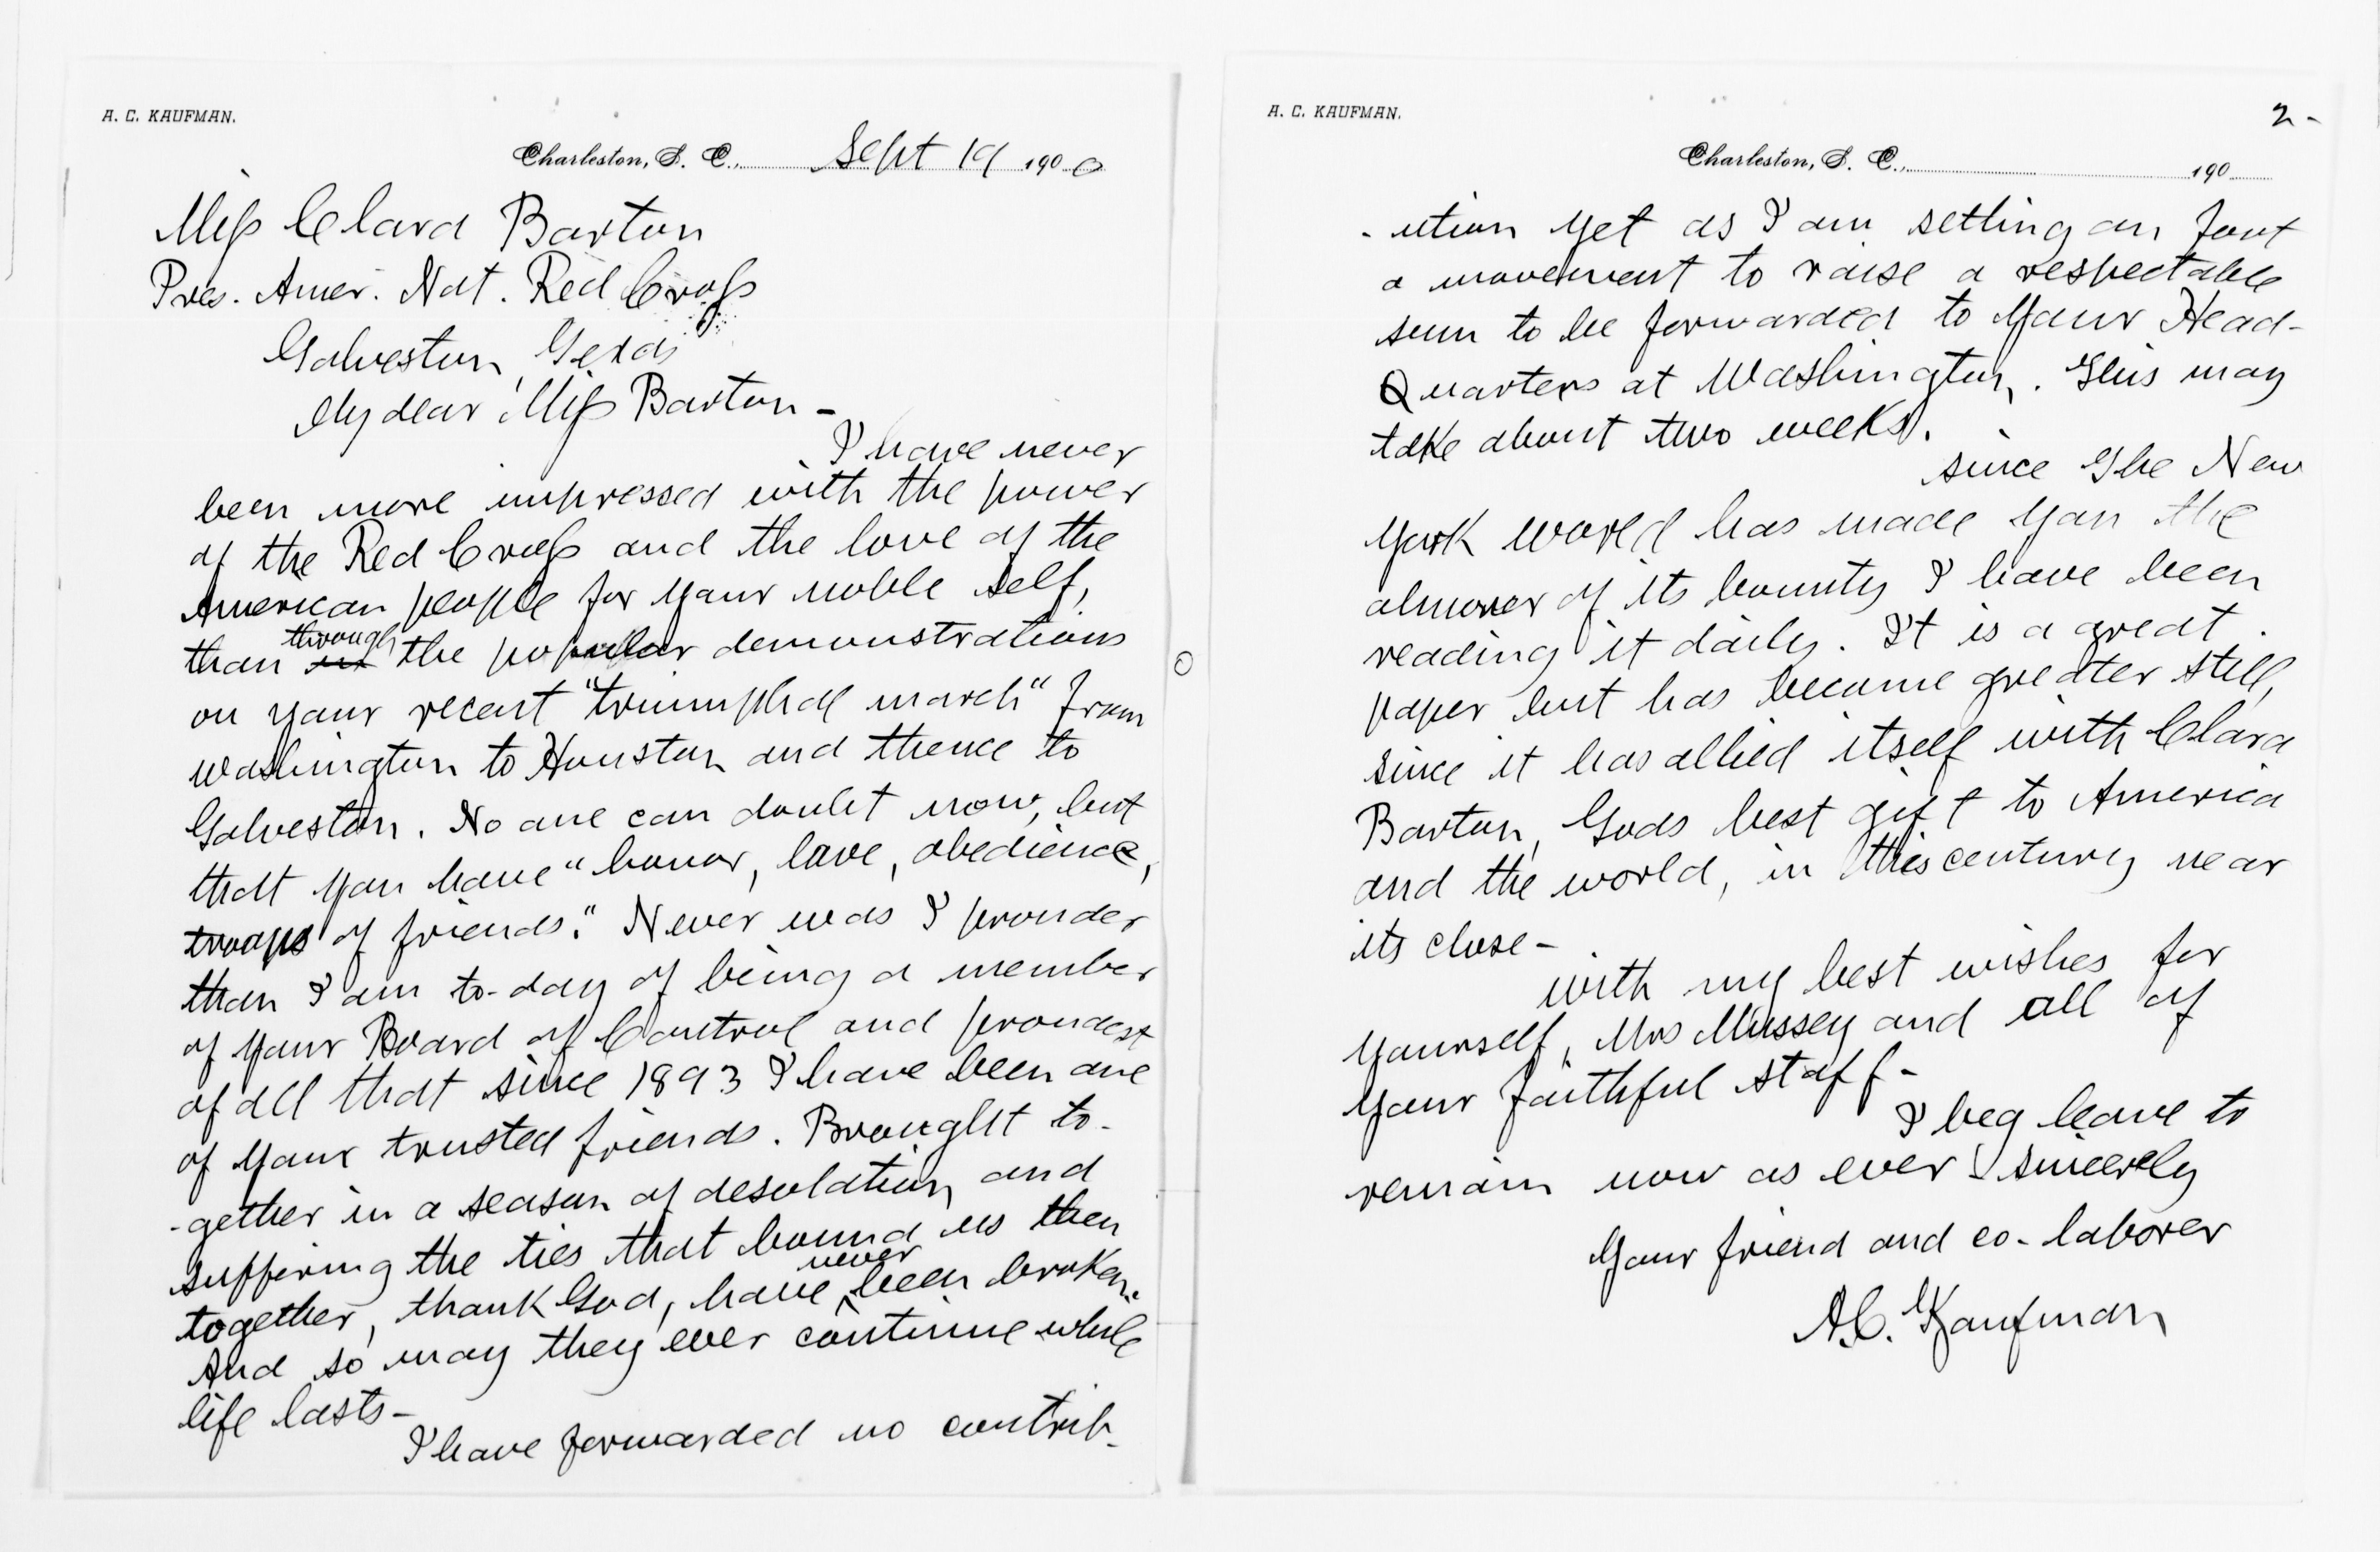 A. C. KAUFMAN.
Charleston, S. C., Sept 19 1900
Miss Clara Barton
Pres. Amer. Nat. Red Cross
Galveston, Texas
My dear Miss Barton -
I have never
been more impressed with the power
of the Red Cross and the love of the
American people for your noble self,
than through the popular demonstrations
on your recent "triumphal march" from
Washington to Houston and thence to
Galveston. No one can doubt now, but
that you have "honor, love, obedience,
troops of friends." Never was I prouder
than I am to-day of being a member
of your Board of Control and proudest
of all that since 1893 I have been one
of your trusted friends. Brought to-
-gether in a season of desolation and
suffering the ties that bound us then
together, thank God, have never been broken.
And so may they ever continue while
life lasts -
I have forwarded no contrib-
A. C. KAUFMAN.
2-
Charleston, S. C., 190
-ution yet as I am setting on foot
a movement to raise a respectable
sum to be forwarded to your Head-
Quarters at Washington. This may
take about two weeks.
since The New
York World has made you the
almoner of its bounty I have been
reading it daily. It is a great
paper but has become greater still,
since it has allied itself with Clara
Barton, Gods best gift to America
and the world, in this century near
its close -
with my best wishes for
yourself, Mrs Mussey and all of
your faithful staff -
I beg leave to
remain now as ever sincerely
Your friend and co-laborer
A.C. Kaufman